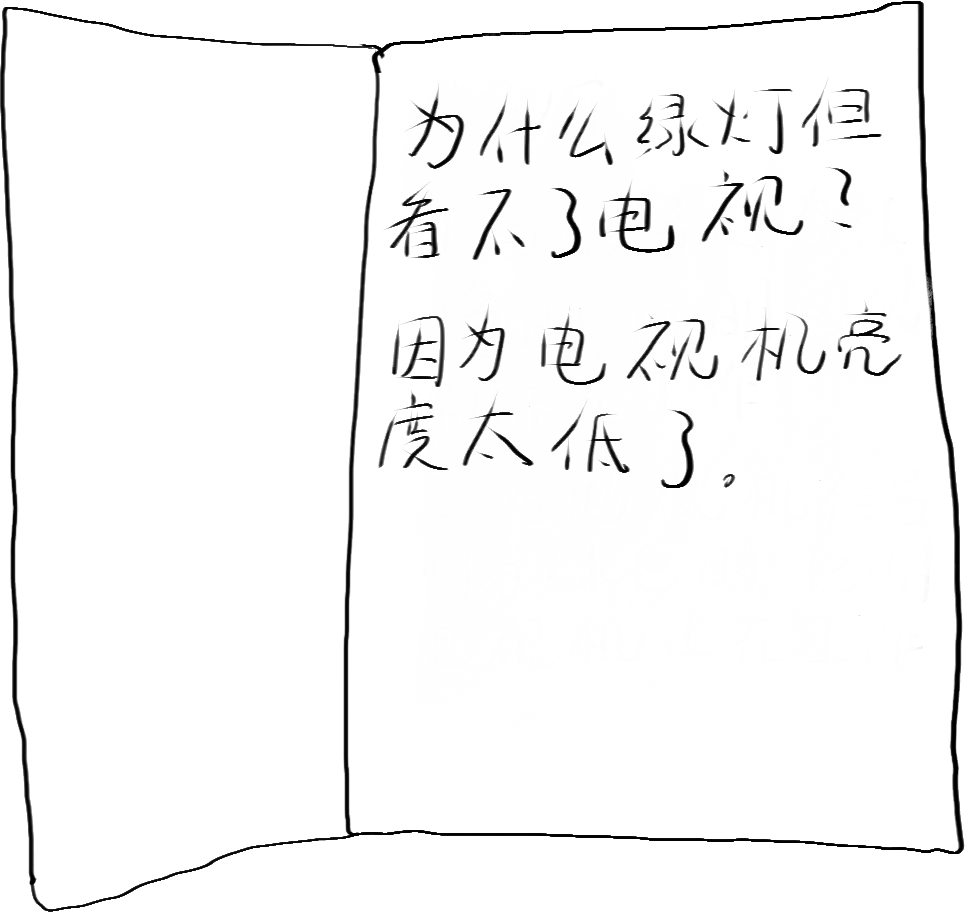 为什么绿灯但
看不了电视？
因为电视机亮
度太低了。